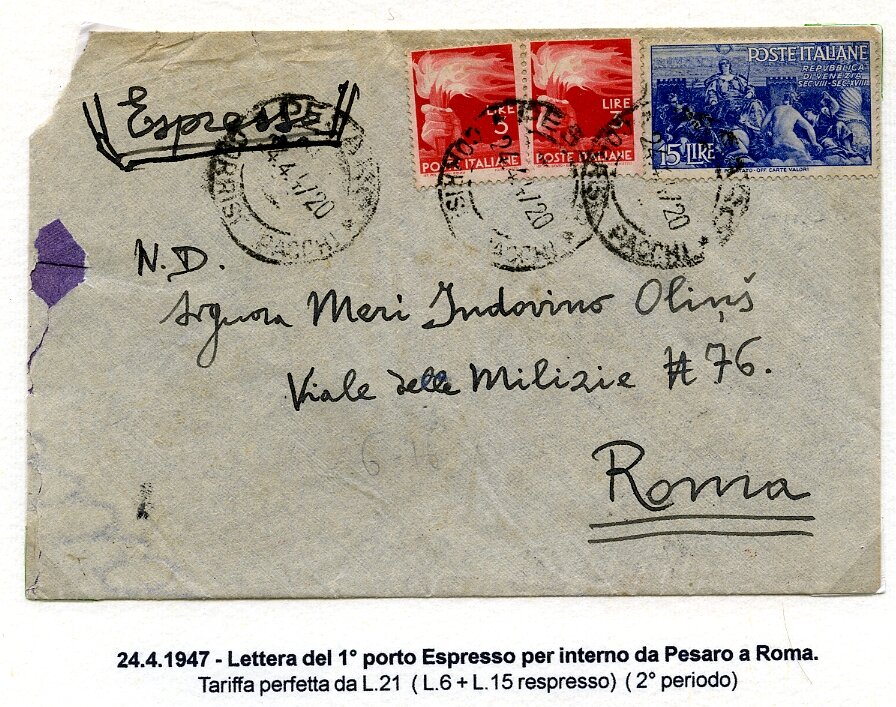 Espresso
LIRE
3
POSTE ITALIANE
LIRE
POSTE ITALIANE
POSTE ITALIANE
REPUBBLICA
DI VENEZIA
SEC VIII-SEC XVIII
15 LIRE
OFF. CARTE VALORI
PESARO
CORRISP
PACCHI
24.4.47 20
N.D.
Signora Meri Indovino Oliņš
Viale delle Milizie # 76.
6-16
Roma
24.4.1947 - Lettera del 1° porto Espresso per interno da Pesaro a Roma.
Tariffa perfetta da L.21 ( L.6 + L.15 respresso) ( 2° periodo)